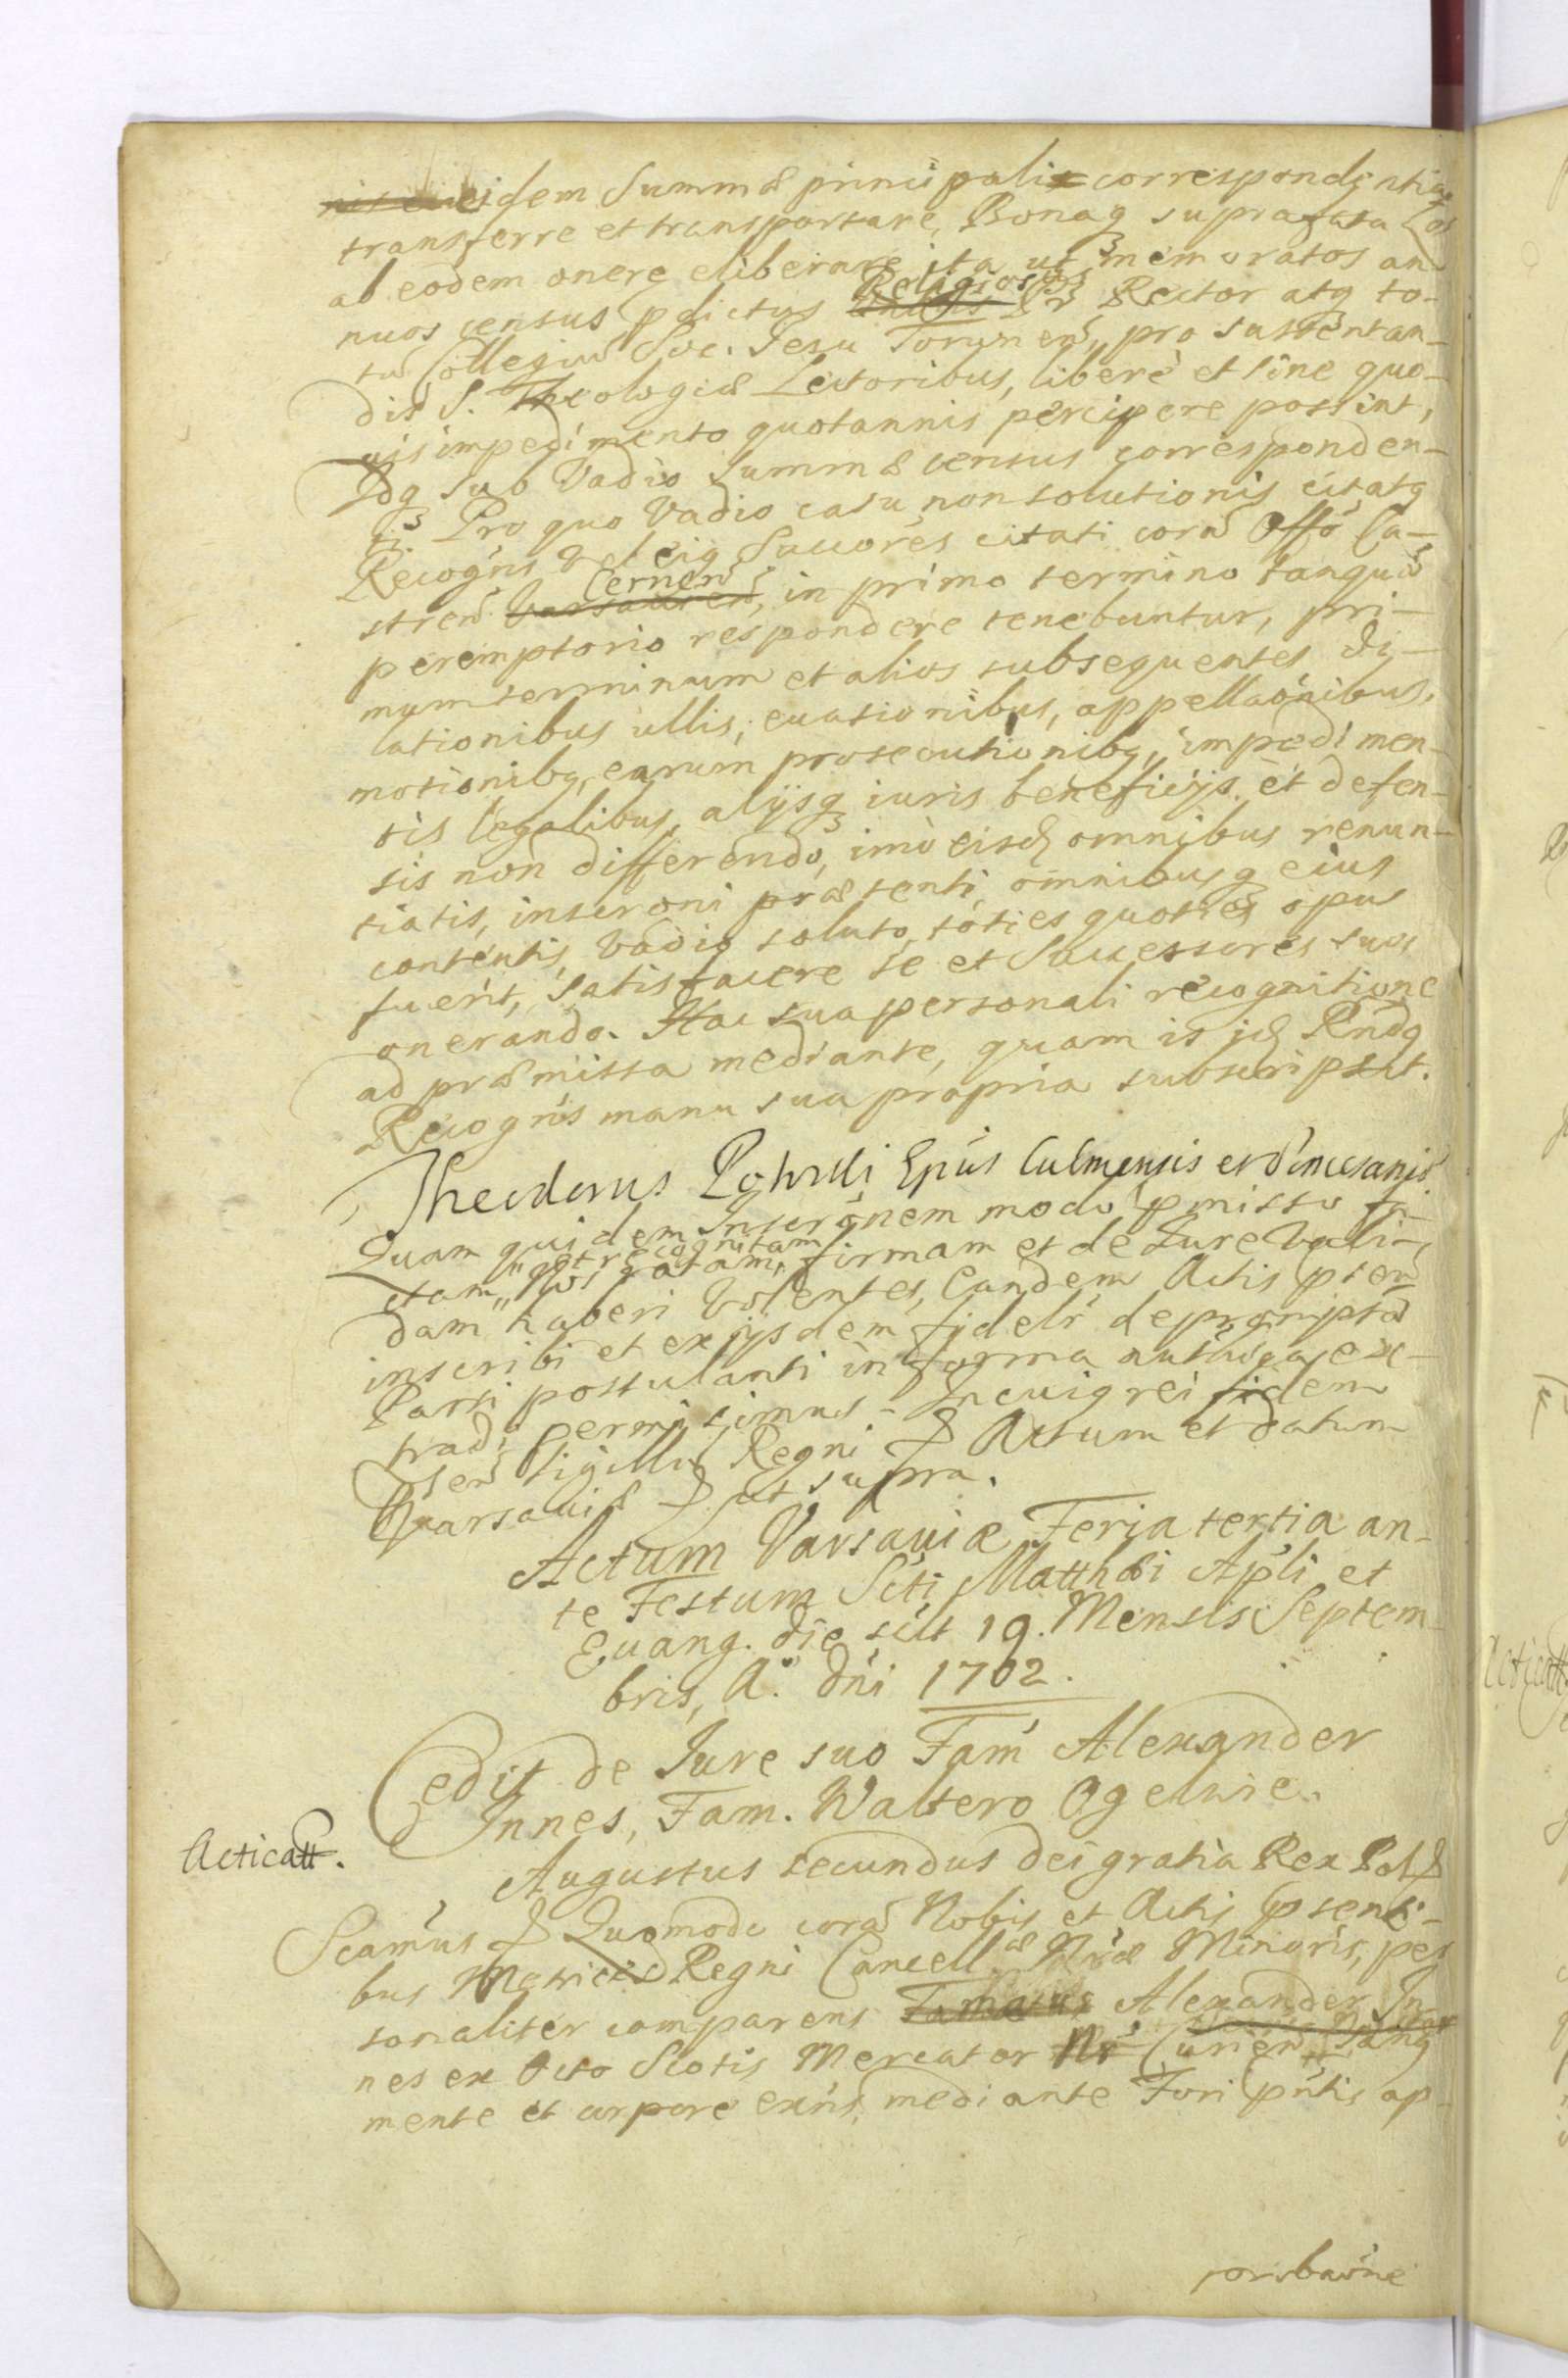 eidem Summæ principali correspondentia
transferre et transportare, Bonaq suprafata
ab eodem onere eliberare ita ut memoratos an
nuos census pdictus Religiosus Pr Rector atq to-
tũ Collegiũ Soc. Jesu Torunen̄, pro sustentan-
dis S. Theologiæ Lectoribus, liberè et sine quo-
uis impedimento quotannis percipere possint,
Idq sub Vadio Summæ census corresponden-
ti. Pro quo Vadio casu non solutionis citatq
Recogn̄s Vel eiq Succores citati corã Offo Ca-
stren̄ Cernen̄, in primo termino tanquã
peremptorio respondere tenebuntur, pri-
mum terminum et alios subsequentes di-
lationibus ullis, euationibus, appellaōnibus,
motionibq, earum prosecutionibq, impedimen-
tis legalibus, alijsq iuris beneficijs et defen-
sis non differendo, imò eisd omnibus renun-
tiatis, inscrōni præsenti, omnibusq eius
contentis, Vadio soluto, tóties quoties opus
fuerit, satisfacere se et Successores suos
onerando. Hac sua personali recognitione
ad præmissa mediante, quam is id Rnd̄q
Recogn̄s manu sua propria subscripsit.
Theodorus Potocki Epūs Culmensis et
Quam quidem Inscrōnem modo pmisso fa-
ctam, et recognitam Nos ratam, firmam et de Jure Vali-
dam haberi Volentes, Eandem Actis pnen̄
inscribi et ex ijsdem fideli depromptã
Parti postulanti in forma auth̄ca ex-
tradi permisimus. In cuiq rei fidem
sen̄ Sigillũ Regni & Actum et datum
Varsaviæ & ut supra.
Actum Varsaviæ Feria tertia an-
te Festum Scti Matthæi Apl̄i et
Euang. die scilt 19. Mensis Septem-
bris, A.o Dn̄i 1702.
Cedit de Jure suo Fam̄ Alexander
Innes, Fam. Waltero Ogelwie.
Acticatt.
Augustus secundus Dei gratia Rex Pol. &
Scam̄us & Quomodo corã Nobis et Actis psenti-
bus Metrices Regni Cancell.æ Nr̄æ Minoris, per
sonaliter comparens Famatus Alexander In-
nes ex Octo Scotis Mercator Nr̄ Curien̄ Sanq
mente et corpore exn̄s, mediante Fori pn̄tis ap-